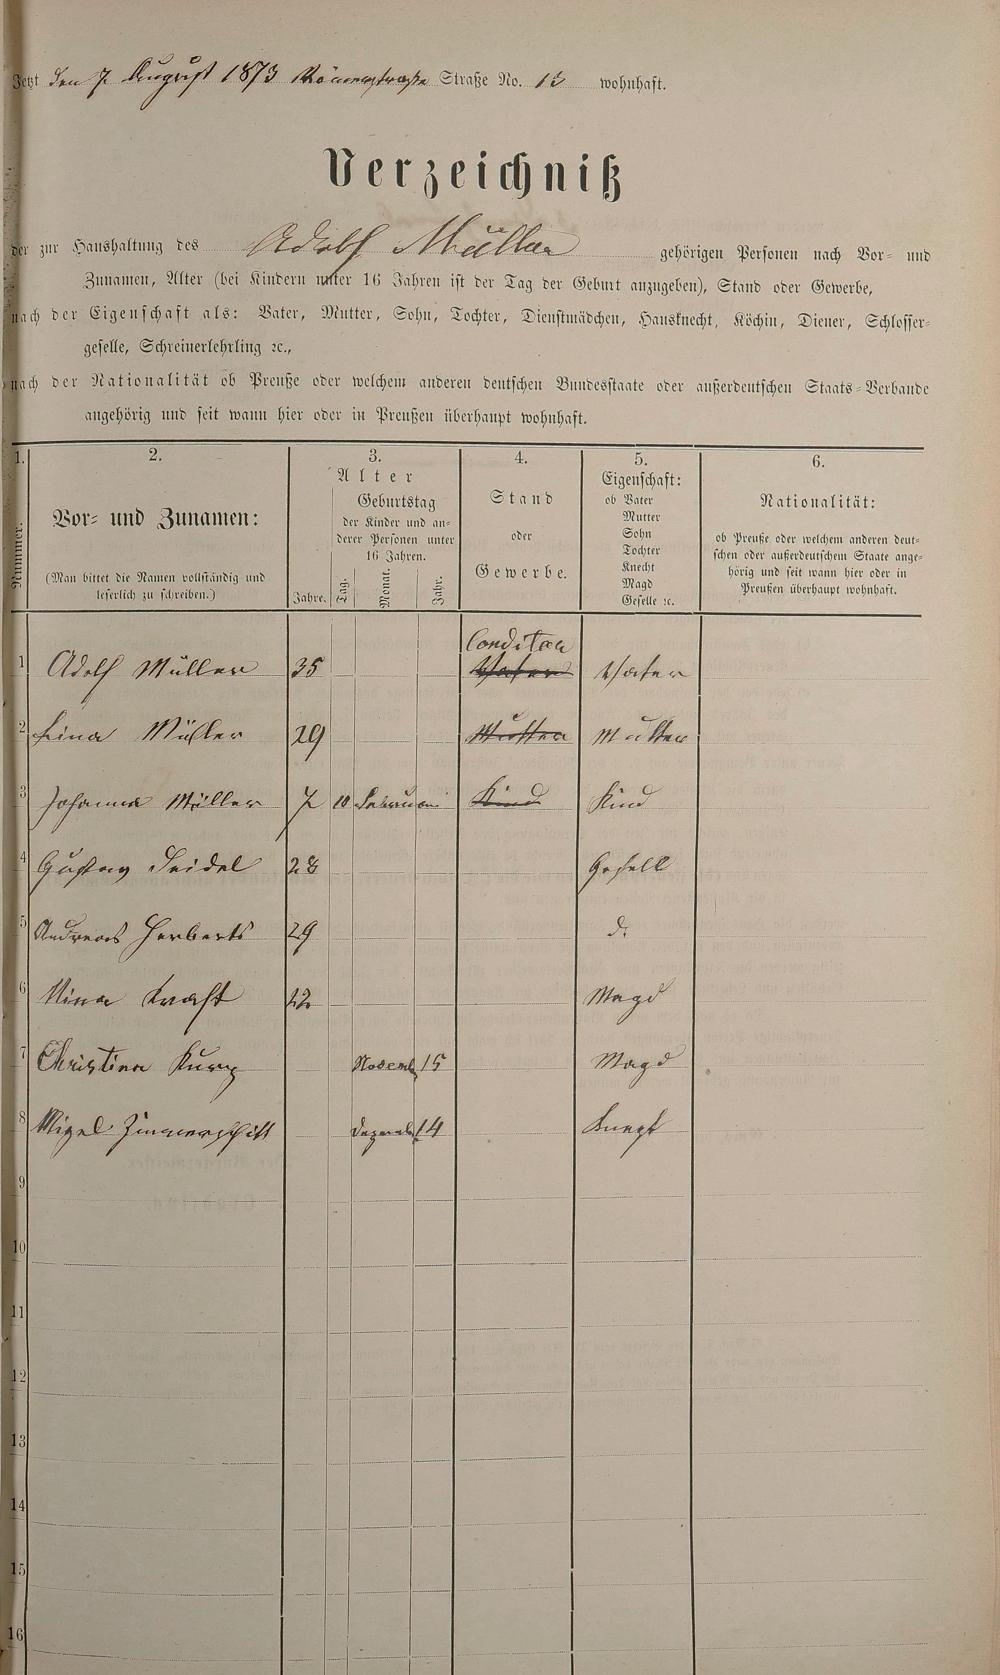 Jetzt den 7 August 1873 Römerstraße Straße No. 13 wohnhaft.
Verzeichniß
der zur Haushaltung des Adolf Müller gehörigen Personen nach Vor- und
Zunamen, Alter (bei Kindern unter 16 Jahren ist der Tag der Geburt anzugeben), Stand oder Gewerbe,
nach der Eigenschaft als: Vater, Mutter, Sohn, Tochter, Dienstmädchen, Hausknecht, Köchin, Diener, Schlosser-
geselle, Schreinerlehrling ꝛc.,
nach der Nationalität ob Preuße oder welchem anderen deutschen Bundesstaate oder außerdeutschen Staats-Verbande
angehörig und seit wann hier oder in Preußen überhaupt wohnhaft.
1. 2. 3. 4. 5. 6.
Nummer.
Vor- und Zunamen:
(Man bittet die Namen vollständig und
leserlich zu schreiben.)
Alter
Jahre.
Geburtstag
der Kinder und an-
derer Personen unter
16 Jahren.
Tag. Monat. Jahr.
Stand
oder
Gewerbe.
Eigenschaft:
ob Vater
Mutter
Sohn
Tochter
Knecht
Magd
Geselle ꝛc.
Nationalität:
ob Preuße oder welchem anderen deut-
schen oder außerdeutschem Staate ange-
hörig und seit wann hier oder in
Preußen überhaupt wohnhaft.
Conditor
1 Adolf Müller 35 Vater Vater
2 Lina Müller 29 Mutter Mutter
3 Johanna Müller 7 10 Februar Kind Kind
4 Gustav Seidel 28 Gesell
5 Andreas Herberts 29 d.
6 Mina Kraft 22 Magd
7 Christina Kurz Novemb 15 Magd
8 Dezemb 14 Knecht
9
10
11
12
13
14
15
16